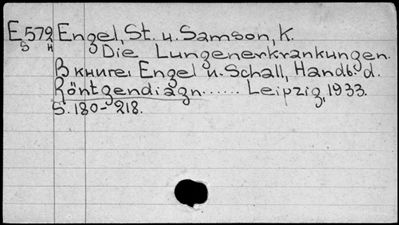 E 579 Engel, St. u. Samson, K.
S H
Die Lungenerkrankungen.
В книге: Engel u. Schall, Handb. d.
Röntgendiagn...... Leipzig, 1933.
S. 180-218.